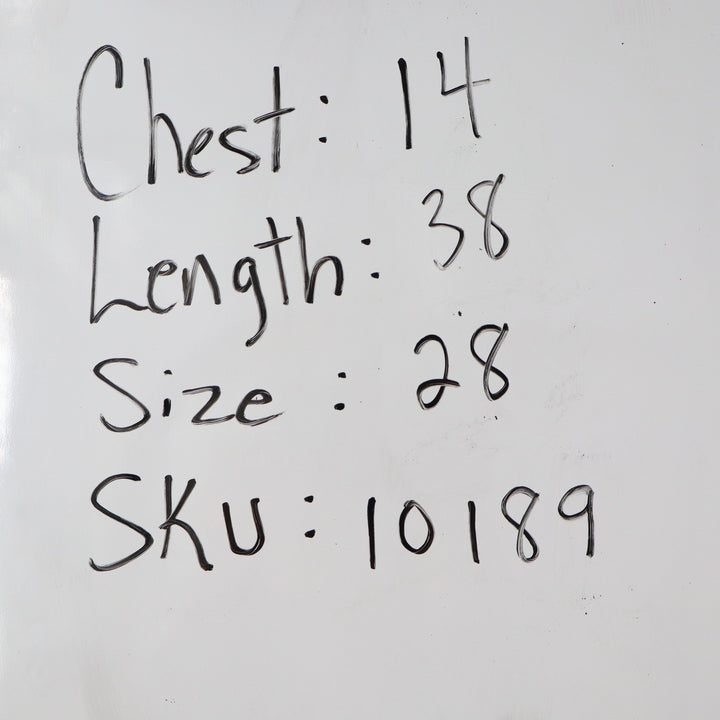 Chest: 14
Length: 38
Size: 28
SKU: 10189